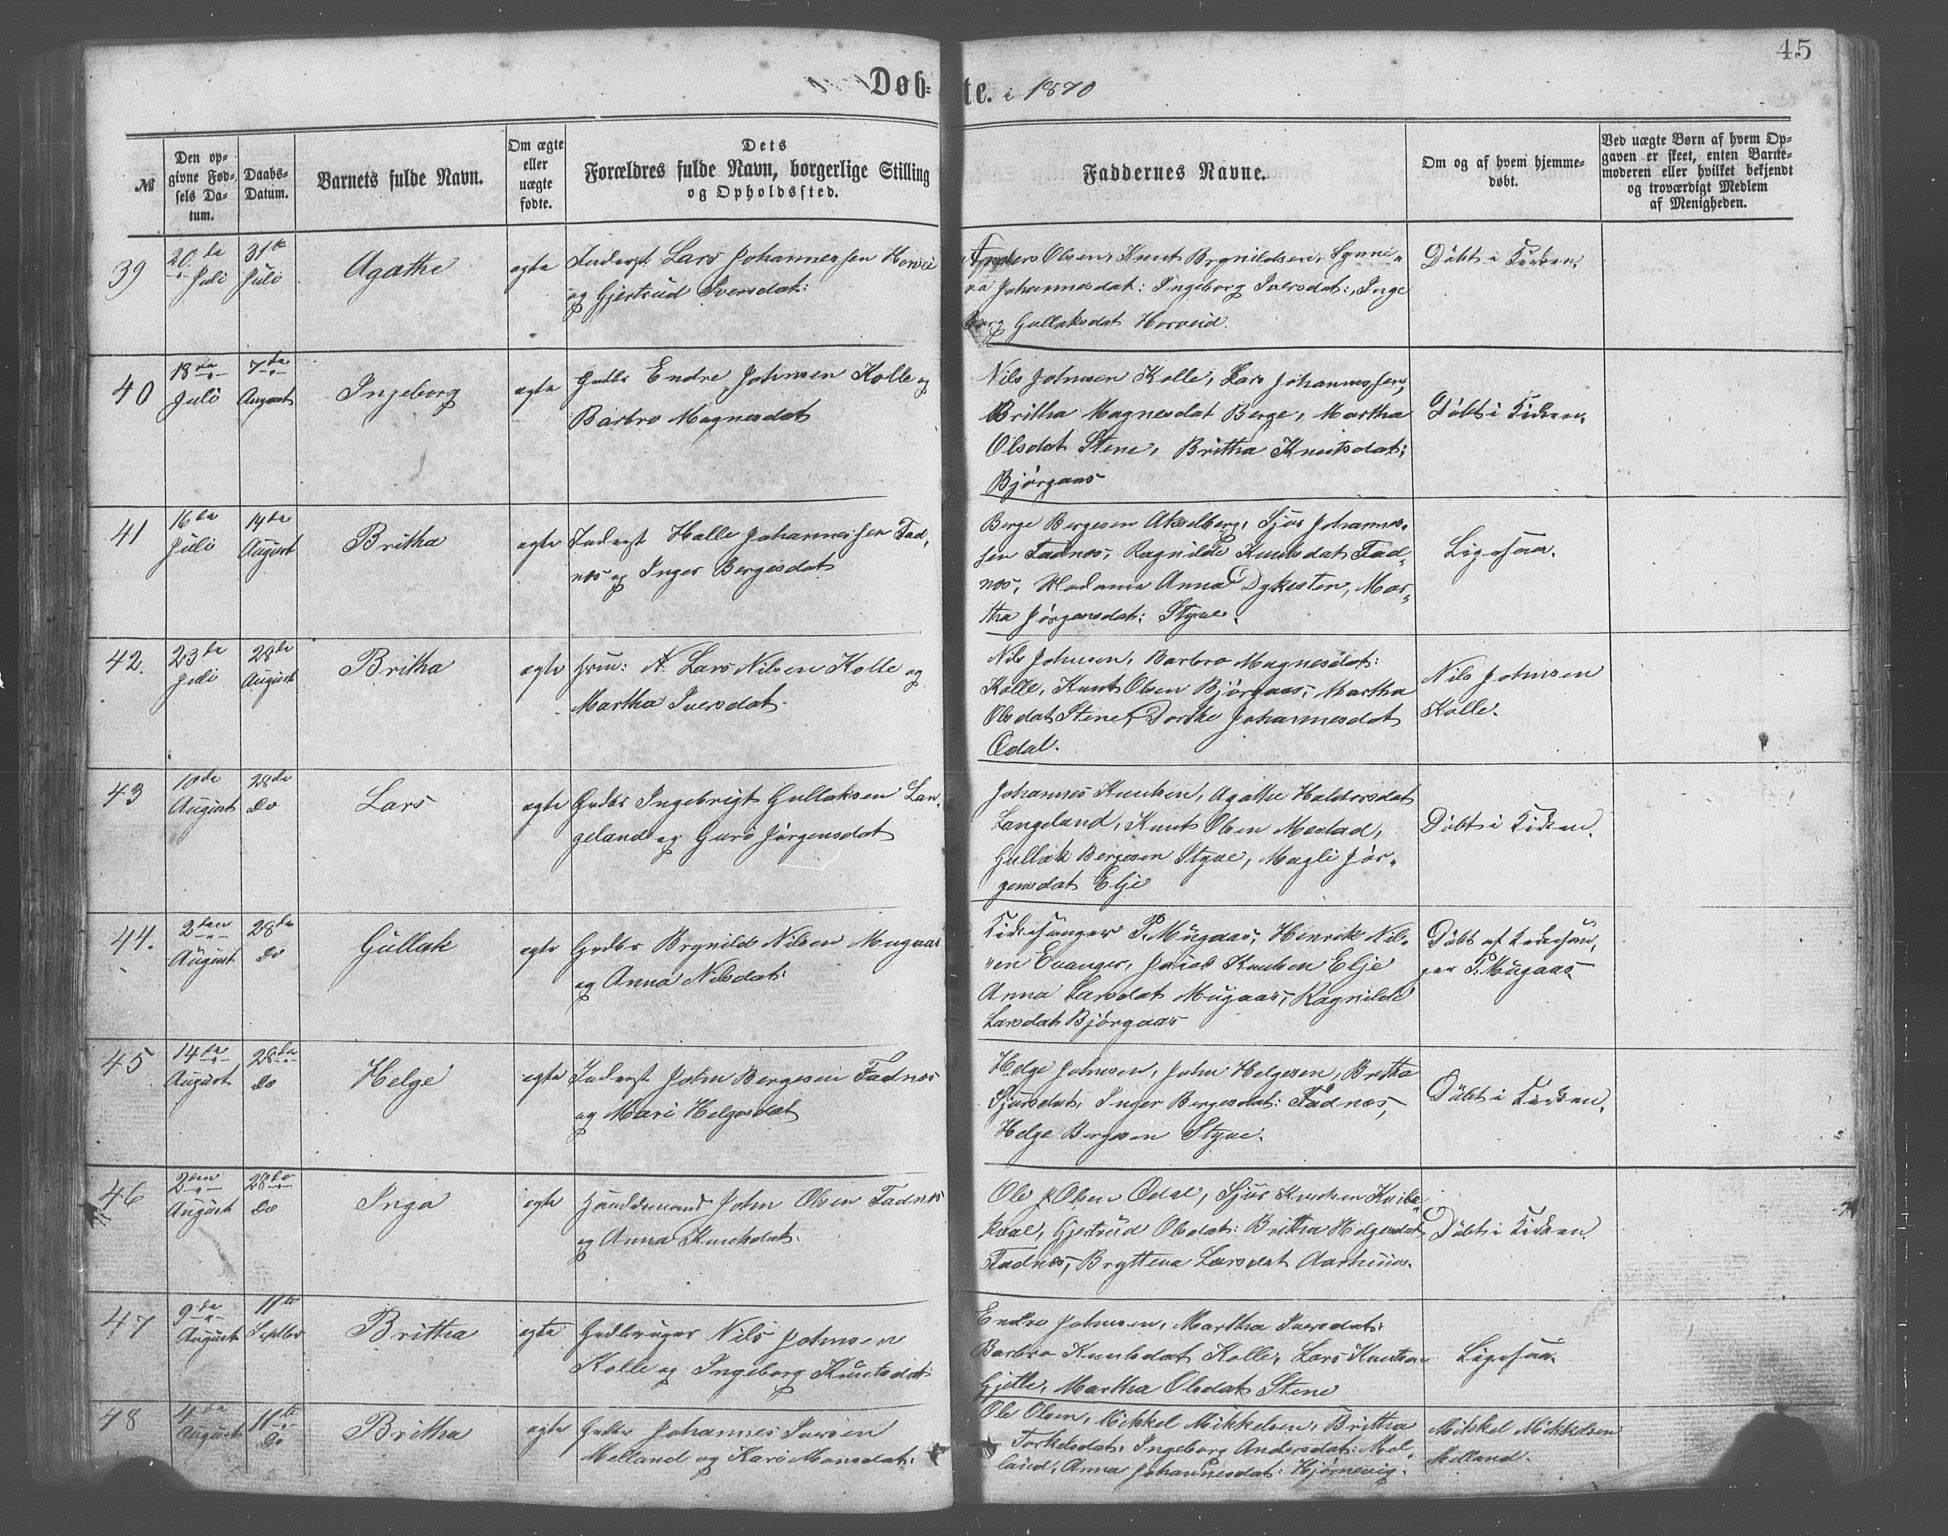 45
Døb-te. i 1870
№
Den op-
givne Fød-
sels Da-
tum.
Daabs-
Datum.
Barnets fulde Navn.
Om ægte
eller
uægte
fødte.
Dets
Forældres fulde Navn, borgerlige Stilling
og Opholdssted.
Faddernes Navne.
Om og af hvem hjemme-
døbt.
Ved uægte Børn af hvem Op-
gaven er skeet, enten Barne-
moderen eller hvilket bekjendt
og troværdigt Medlem
af Menigheden.
39
20de
Juli
31te
Juli
Agathe
ægte
Inderst Lars Johannessen Horvei
og Gjertrud Iversdat:
Anders Olsen, Knut Brynildsen, Synne-
va Johannesdat: Ingeborg Iversdat:, Inge
borg Gullaksdat Horveid.
Döbt i Kirken.
40
18de
Juli
7de
August
Ingeborg
ægte
Grdbr Endre Johnsen Kolle og
Barbro Magnesdat
Nils Johnsen Kolle, Lars Johannessen,
Britha Magnesdat Berge, Martha
Olsdat Stene, Britha Knutsdat:
Bjørgaas
Döbt i Kirken.
41
16de
Juli
14de
August
Britha
ægte
Inderst Halle Johannessen Fad-
nes og Inger Bergesdat
Berge Bergesen Akselberg, Sjur Johannes-
sen Fadnes, Ragnilde Knutsdat Fad-
nes, Madame Anna Dykesten, Mar-
tha Jørgensdat: Styve.
Ligesaa.
42.
23de
Juli
28de
August
Britha
ægte
Lars Nilsen Kolle og
Martha Iversdat.
Nils Johnsen, Barbro Magnesdat:
Kolle, Knut Olsen Bjørgaas, Martha
Olsdat Stene, Dorthe Johannesdat
Ødal.
Nils Johnsen
Kolle.
43
10de
August
28de
Do
Lars
ægte
Grdbr Ingebrigt Gullaksen Lan-
geland og Guro Jørgensdat
Johannes Knutsen, Agathe Haldorsdat
Langeland, Knut Olsen Mestad,
Gullak Bergesen Styve, Magli Jør-
gensdat Elje
Döbt i Kirken.
44.
2den
August
28de
Do
Gullak
ægte
Grdbr Brynild Nilsen Mugaas
og Anna Nilsdat:
Kirkesanger P. Mugaas, Henrik Nil-
sen Evanger, Knutsen Elje
Anna Larsdat Mugaas, Ragnilde
Larsdat Bjørgaas
Döbt af Kirkesan-
ger P. Mugaas.
45
14de
August
28de
Do
Helge
ægte
Inderst John Bergesen Fadnes
og Mari Helgesdat
Helge Johnsen, John Helgesen, Britha
Sjursdat, Inger Bergesdat: Fadnes,
Helge Bergesen Styve.
Döbt i Kirken.
46
2den
August
28de
Do
Inga
ægte
Handelsmand John Olsen Fadnes
og Anna Knutsdat.
Ole J Olsen Ødal, Sjur Knutsen Kvite-
kval, Gjertrud Olsdat: Britha Helgesdat
Fadnes, Bryttena Larsdat Aarhuus.
Döbt i Kirken.
47
9de
August
11te
Septbr
Brittha
ægte
Grdbruger Nils Johnsen
Kolle og Ingeborg Knutsdat
Endre Johnsen, Martha Iversdat:
Barbro Knutsdat Kolle, Lars Knutsen
Gjelle, Martha Olsdat Stene
Ligesaa.
48
4de
August
11te
Do
Britha
ægte
Grdbr Johannes Iversen
Melland og Kari Monsdat:
Ole Olsen, Mikkel Mikkelsen, Brittha
Torkelsdat, Ingeborg Andersdat: Mel-
land, Anna Johannesdat: Hjørnevig.
Mikkel Mikkelsen
Melland.